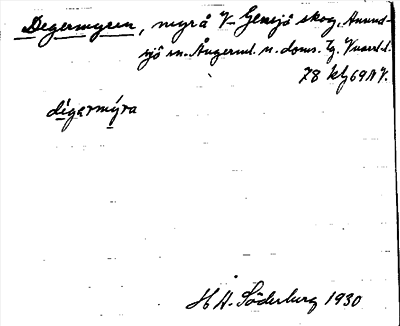 Degermyren, myr å V. Gensjö skog, Anund-
sjö sn. Ångerml. n. doms. Tg.
78 kf 69 A V.
dígarmýra
H A. Söderburg 1930